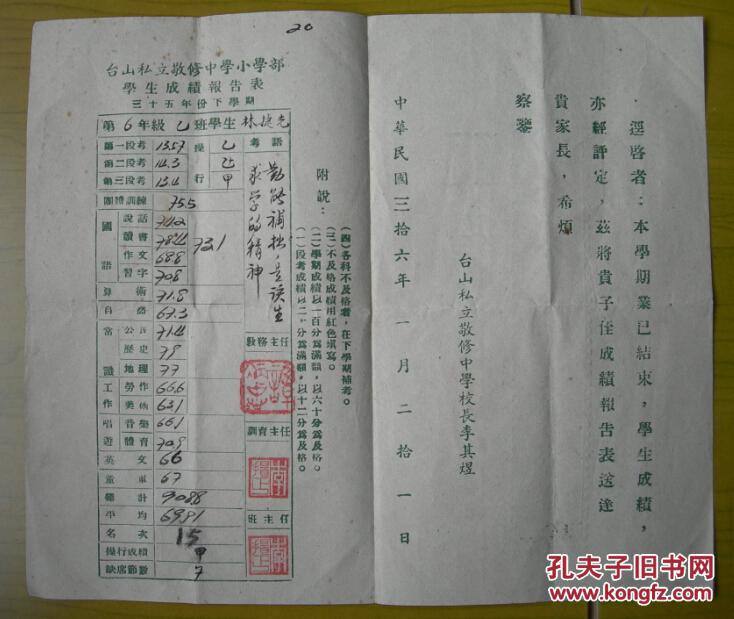 20
台山私立敬修中學小學部
學生成績報告表
三十五年份下學期
第6年級乙班學生林捷光
第一段考 13.57
第二段考 14.3
第三段考 13.4
操行 乙 乙 甲
團體訓練 75.5
國語 73.1
說話 74.2
讀書 78.4
作文 68.8
習字 70.8
算術 71.8
自然 67.3
常識
公民 71.4
歷史 79
地理 77
工作
勞作 66.6
美術 63.1
唱遊
音樂 66.1
體育 70.9
英文 66
童軍 67
總計 908.8
平均 69.91
名次 15
操行成績 甲
缺席節數 7
考語
勤能補拙，是該生
求学的精神
教務主任
訓育主任
班主任
附說：
(一)段考成績以二。分為滿額，以十二分為及格。
(二)學期成績以一百分為滿額，以六十分為及格。
(三)不及格成績用紅色填寫。
(四)各科不及格者，在下學期補考。
逕啓者：本學期業已結束，學生成績，
亦經評定，茲將貴子侄成績報告表送達
貴家長，希煩
察鑒
台山私立敬修中學校長李其煜
中華民國三拾六年一月二拾一日
孔夫子旧书网
KONGFZ.COM